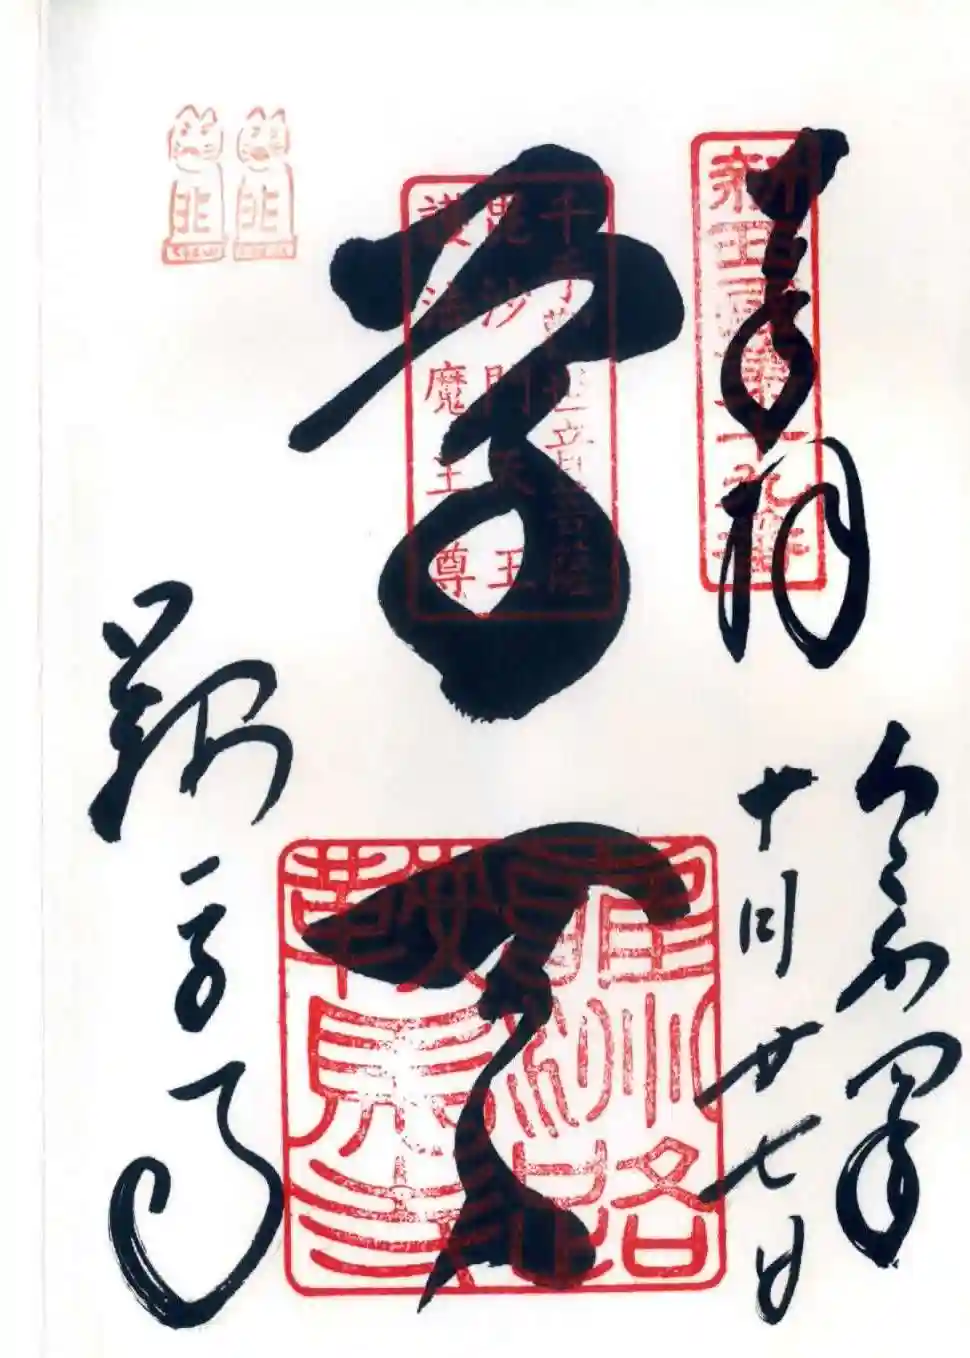 奉拝
新西国第十九番
令和四年
十月廿七日
尊天
千手観世音菩薩
毘沙門天王
護法魔王尊
鞍馬寺